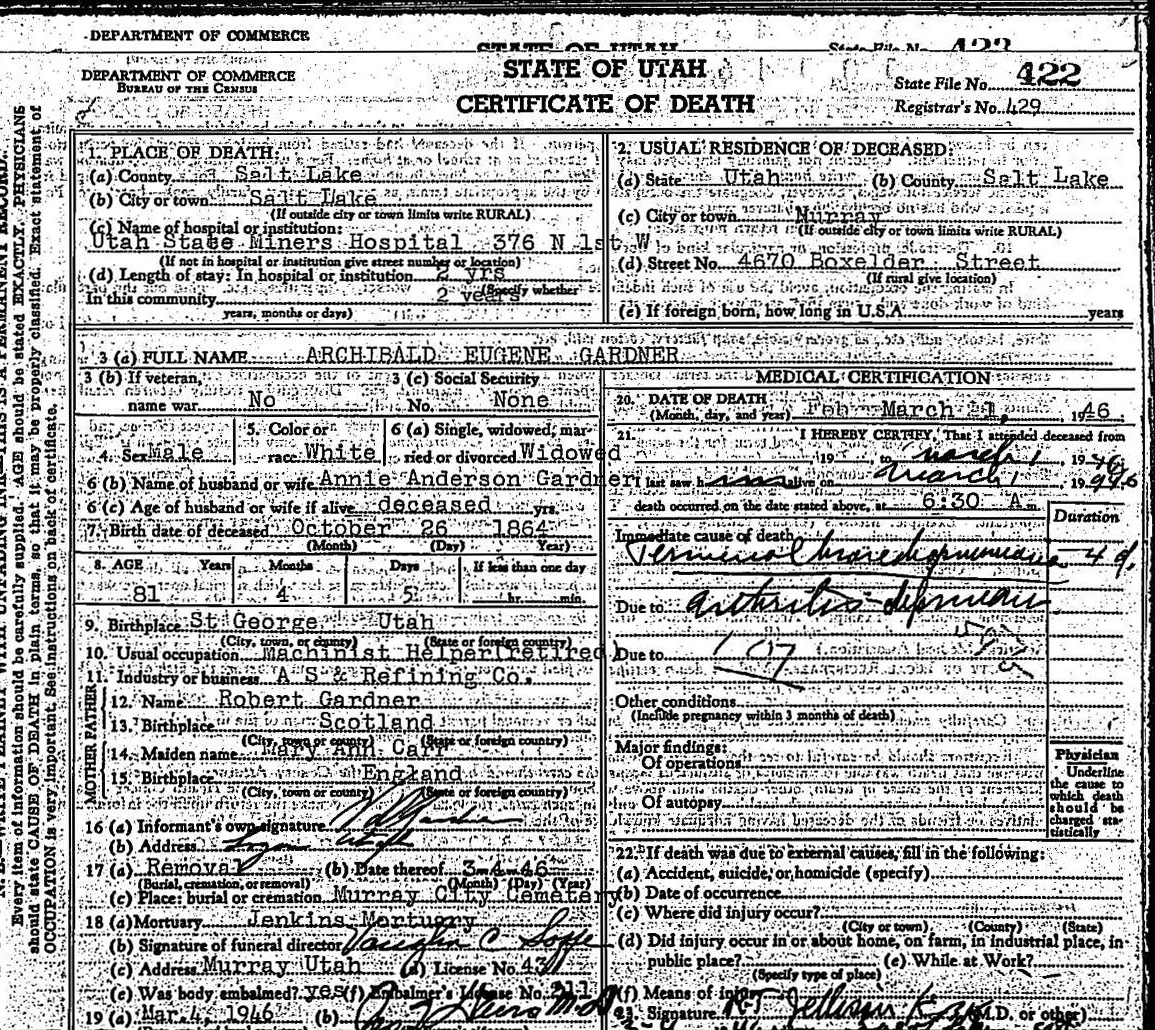 DEPARTMENT OF COMMERCE
STATE OF UTAH
State File No. 422
DEPARTMENT OF COMMERCE
BUREAU OF THE CENSUS
STATE OF UTAH
CERTIFICATE OF DEATH
State File No. 422
Registrar's No. 429
Every item of information should be carefully supplied. AGE should be stated EXACTLY. PHYSICIANS
should state CAUSE OF DEATH in plain terms, so that it may be properly classified. Exact statement of
OCCUPATION is very important. See instructions on back of certificate.
1. PLACE OF DEATH:
(a) County Salt Lake
(b) City or town Salt Lake
(If outside city or town limits write RURAL)
(c) Name of hospital or institution:
Utah State Miners Hospital 376 N 1st W
(If not in hospital or institution give street number or location)
(d) Length of stay: In hospital or institution 2 yrs
(Specify whether
In this community 2 years
years, months or days)
2. USUAL RESIDENCE OF DECEASED:
(a) State Utah (b) County Salt Lake
(c) City or town Murray
(If outside city or town limits write RURAL)
(d) Street No. 4670 Boxelder Street
(If rural give location)
(e) If foreign born, how long in U.S.A. years
3 (a) FULL NAME ARCHIBALD EUGENE GARDNER
3 (b) If veteran, 3 (c) Social Security
name war No No. None
4. Sex Male
5. Color or
race White
6 (a) Single, widowed, mar-
ried or divorced Widowed
6 (b) Name of husband or wife Annie Anderson Gardner
6 (c) Age of husband or wife if alive deceased yrs.
7. Birth date of deceased October 26 1864
(Month) (Day) Year)
8. AGE Years Months Days If less than one day
81 4 5 hr. min.
9. Birthplace St George Utah
(City, town, or county) (State or foreign country)
10. Usual occupation Machinist Helper(retired
11. Industry or business A S & Refining Co.
FATHER
12. Name Robert Gardner
13. Birthplace Scotland
(City, town or county) (State or foreign country)
MOTHER
14. Maiden name Mary Ann Carr
15. Birthplace England
(City, town or county) (State or foreign country)
16 (a) Informant's own signature
(b) Address Logan Utah
17 (a) Removal (b) Date thereof 3-4-46
(Burial, cremation, or removal) (Month) (Day) (Year)
(c) Place: burial or cremation Murray City Cemetery
18 (a) Mortuary Jenkins Mortuary
(b) Signature of funeral director Vaughn C
(c) Address Murray Utah (d) License No. 43
(e) Was body embalmed? yes (f) Embalmer's License No.
19 (a) Mar 4, 1946 (b)
MEDICAL CERTIFICATION
20. DATE OF DEATH
(Month, day, and year) Feb March 1, 1946
21. I HEREBY CERTIFY, That I attended deceased from
19 to March 1 1946
I last saw him alive on March 1 1946
death occurred on the date stated above, at 6:30 A m.
Duration
Immediate cause of death
Terminal 4 d.
Due to arthritis
Due to
Other conditions
(Include pregnancy within 3 months of death)
Major findings:
Of operations
Of autopsy
Physician
Underline
the cause to
which death
should be
charged sta-
tistically
22. If death was due to external causes, fill in the following:
(a) Accident, suicide, or homicide (specify)
(b) Date of occurrence
(c) Where did injury occur?
(City or town) (County) (State)
(d) Did injury occur in or about home, on farm, in industrial place, in
public place? (e) While at Work?
(Specify type of place)
(f) Means of injury
23. Signature (M.D. or other)